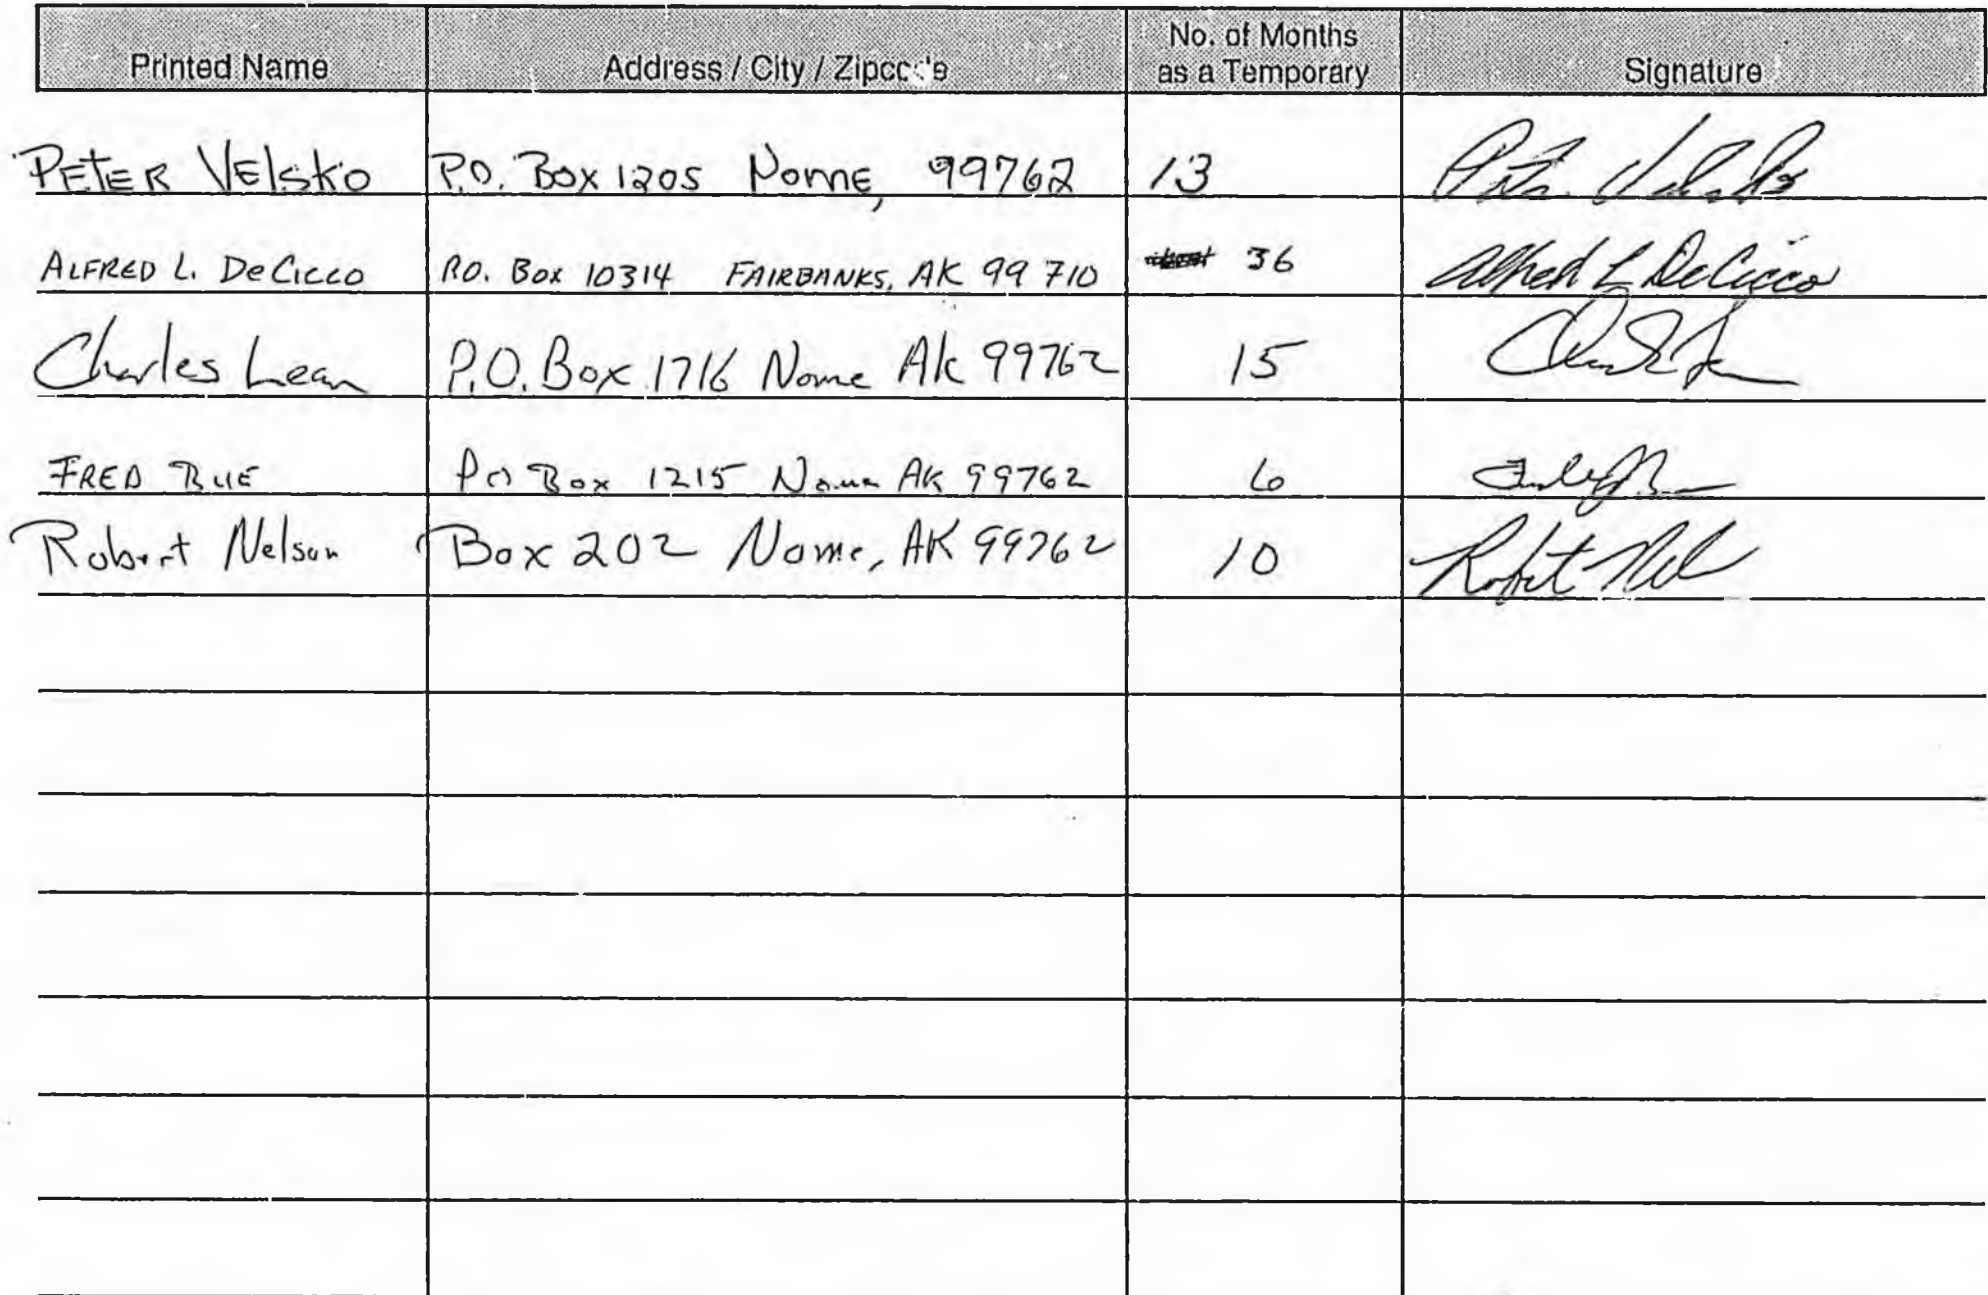 Printed Name Address / City / Zipcode No. of Months as a Temporary Signature
PETER VELSKO P.O. Box 1205 Nome, 99762 13
ALFRED L. DECICCO P.O. Box 10314 FAIRBANKS, AK 99710 36 Alfred L DeCicco
Charles Lean P.O. Box 1716 Nome Ak 99762 15
FRED BUE PO Box 1215 Nome AK 99762 6
Robert Nelson Box 202 Nome, AK 99762 10 Robert Nel